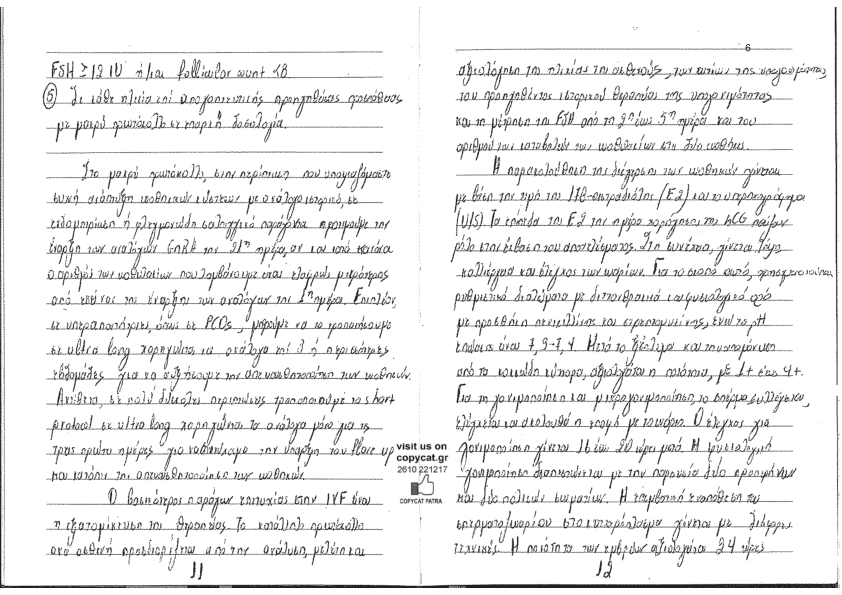 FSH ≥ 12 IU ή/και follicular count <8
⑤ Σε κάθε ηλικία επί υπογοητευτικής προηγηθείσας προσπάθειας
με μακρύ πρωτόκολλο σε επαρκή δοσολογία.
Στο μακρύ πρωτόκολλο, στην περίπτωση που υποψιαζόμαστε
συχνή ανάπτυξη ωοθηκικών κύστεων με ανάλογο ιστορικό, σε
ενδομητρίωση ή φλεγμονώδη σαλπιγγικό παράγοντα προτιμούμε την
έναρξη των αναλόγων GnRH την 21η ημέρα, αν και κατά κανόνα
ο αριθμός των ωοθυλακίων που λαμβάνουμε είναι ελαφρώς μικρότερος
από εκείνος της έναρξης των αναλόγων την 2η ημέρα. Επιπλέον,
σε υπεραπαντήτριες, όπως σε PCOs, μπορούμε να το τροποποιήσουμε
σε ultra long χορηγώντας τα ανάλογα επί 3 ή περισσότερες
εβδομάδες για να αυξήσουμε την απευαισθητοποίηση των ωοθηκών.
Αντίθετα, σε πολύ δύσκολες περιπτώσεις τροποποιούμε το short
protocol σε ultra long χορηγώντας τα ανάλογα μόνο για τις
τρεις πρώτες ημέρες για να επιτύχουμε την ύπαρξη του flare up
και κατόπιν της απευαισθητοποίησης των ωοθηκών.
Ο βασικότερος παράγων επιτυχίας στην IVF είναι
η εξατομίκευση της θεραπείας. Το κατάλληλο πρωτόκολλο
ανά ασθενή προσδιορίζεται από την ανάλυση, μελέτη και
11
visit us on
copycat.gr
2610 221217
COPYCAT PATRA
6
αξιολόγηση της ηλικίας της ασθενούς, των αιτίων της υπογονιμότητας,
του προηγηθέντος ιστορικού θεραπείας της υπογονιμότητας
και τη μέτρηση της FSH από τη 2η έως 5η ημέρα και του
αριθμού των καταβολών των ωοθυλακίων στις δύο ωοθήκες.
Η παρακολούθηση της διέγερσης των ωοθηκών γίνεται
με βάση την τιμή της 17β-οιστραδιόλης (E2) και το υπερηχογράφημα
(U/S). Τα επίπεδα της E2 την ημέρα χορήγησης της hCG παίζουν
ρόλο στην έκβαση του αποτελέσματος. Στη συνέχεια, γίνεται
καλλιέργεια και έλεγχος των ωαρίων. Για το σκοπό αυτό, χρησιμοποιούνται
ρυθμιστικά διαλύματα με διττανθρακικά και φυσιολογικό ορό
με προσθήκη πενικιλλίνης και στρεπτομυκίνης, ενώ το pH
είναι 7,3-7,4. Μετά το ξέπλυμα και την απομάκρυνση
από τα κοκκιώδη κύτταρα, αξιολογείται η ποιότητα, με 1+ έως 4+.
Για τη γονιμοποίηση και μικρογονιμοποίηση, το σπέρμα συλλέγεται,
ελέγχεται και ακολουθεί η επαφή με το ωάριο. Ο έλεγχος για
γονιμοποίηση γίνεται 16 έως 20 ώρες μετά. Η φυσιολογική
γονιμοποίηση διαπιστώνεται με την παρουσία δύο προπυρήνων
και δύο πολικών σωματίων. Η εναπόθεση του
σπερματοζωαρίου στο κυτταρόπλασμα γίνεται με διάφορες
τεχνικές. Η ποιότητα των εμβρύων αξιολογείται 24 ώρες
12